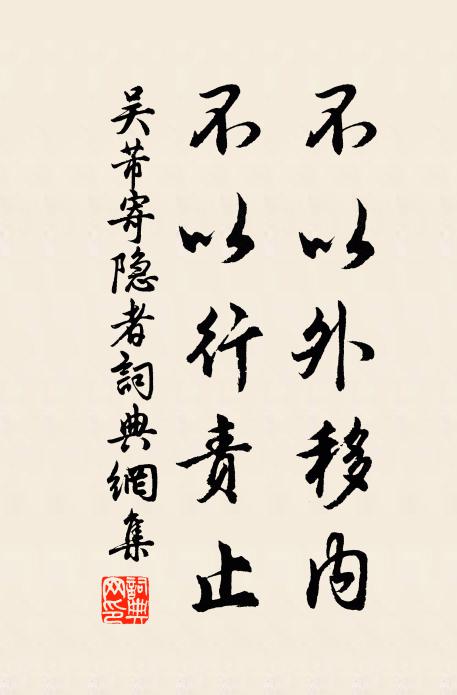 不以外移内
不以行责止
吴芾寄隐者詞典網集
詞典網印